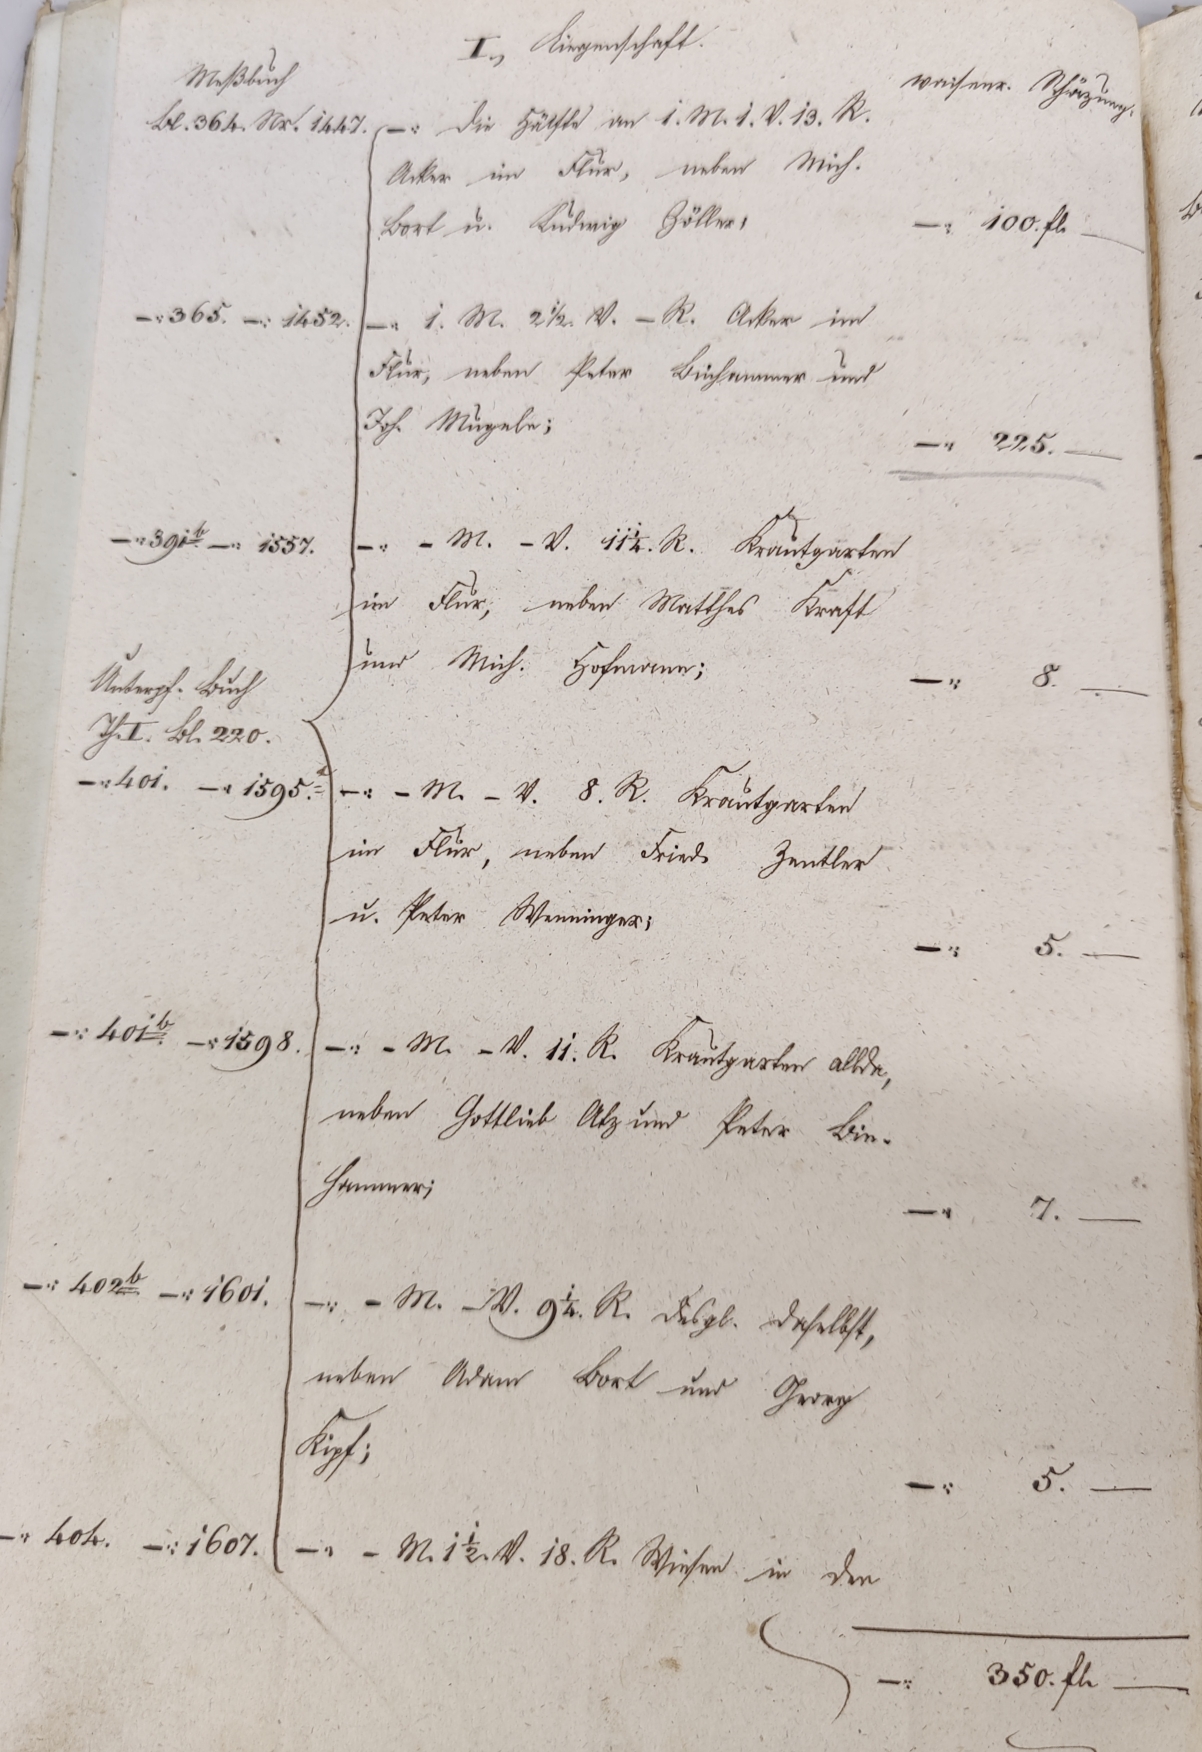 I., Liegenschaft.
Meßbuch
waisenr. Schäzung.
Bl. 364. Nr. 1447. —: Die Hälfte an 1. M. 1. V. 13. R.
Acker im Flur, neben Mich.
Bort u. Ludwig Zöller; —: 100. fl —
—: 365. —: 1452. —: 1. M. 2½. V. – R. Acker im
Flur, neben Peter Binhammer und
Joh. Mugele; —: 225. —
—: 391b —: 1557. —: – M. – V. 11¼. R. Krautgarten
im Flur, neben Matthes Kraft
und Mich. Hofmann; —: 8. —
Unterpf. Buch
Th. I. Bl. 220.
—: 401. —: 1595. —: – M. – V. 8. R. Krautgarten
im Flur, neben Fried. Zentler
u. Peter Wenninger; —: 5. —
—: 401b —: 1598. —: – M. – V. 11. R. Krautgarten allda,
neben Gottlieb Atz und Peter Bin-
hammer; —: 7. —
—: 402b —: 1601. —: – M. – V. 9¼. R. desgl. daselbst,
neben Adam Bort und Georg
Kipf; —: 5. —
—: 404. —: 1607. —: – M. 1½. V. 18. R. Wiesen in den
—: 350. fl —